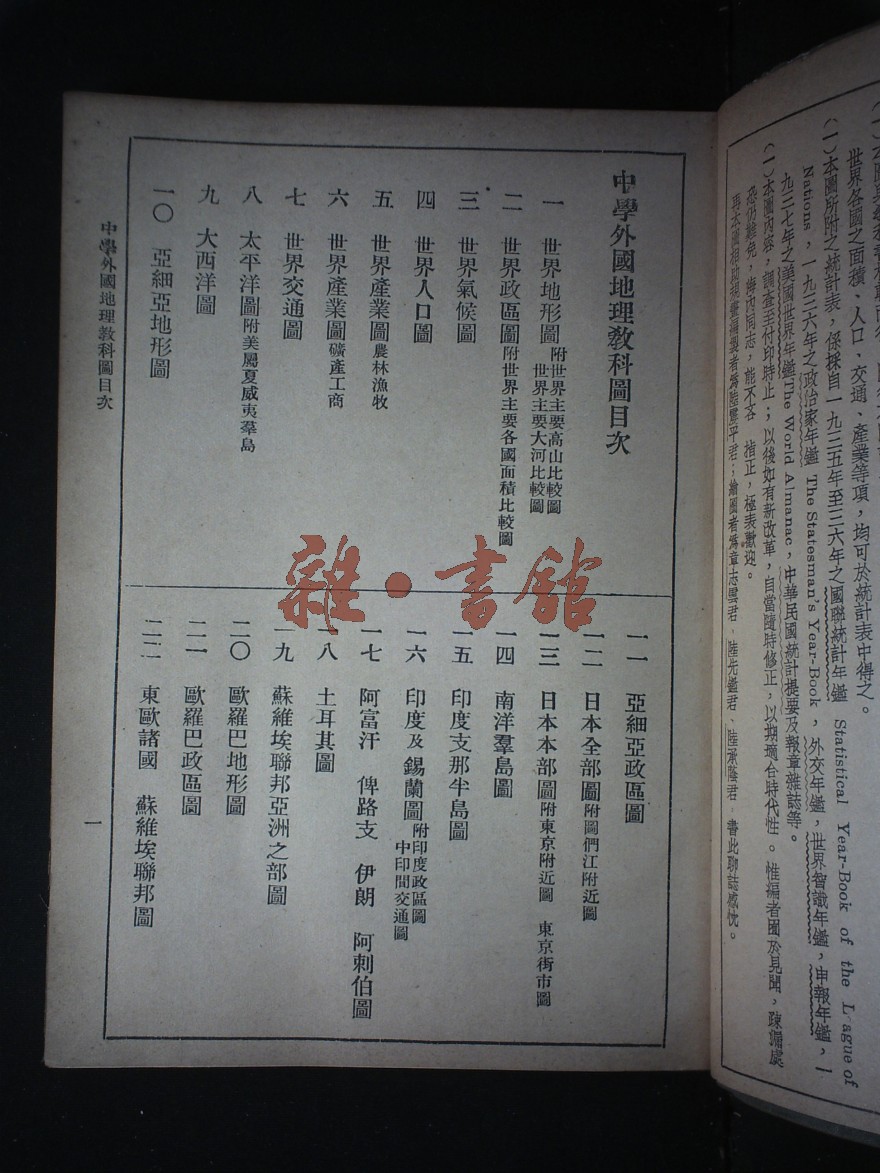 世界各國之面積、人口、交通、產業等項，均可於統計表中得之。
(一)本圖所附之統計表，係採自一九三五年至三六年之國聯統計年鑑 Statistical Year-Book of the League of
Nations，一九三六年之政治家年鑑 The Statesman's Year-Book，外交年鑑，世界智識年鑑，申報年鑑，一
九三七年之美國世界年鑑The World Almanac，中華民國統計提要及報章雜誌等。
(一)本圖內容，調查至付印時止；以後如有新改革，自當隨時修正，以期適合時代性。惟編者囿於見聞，疎漏處
恐仍難免，海內同志，能不吝 指正，極表歡迎。
再本圖相助 編製者爲陸 平君；繪圖者爲章志雲君，陸先鑑君，陸承蔭君，書此聊誌感忱。
中學外國地理教科圖目次
一 世界地形圖 附世界主要高山比較圖 世界主要大河比較圖
二 世界政區圖 附世界主要各國面積比較圖
三 世界氣候圖
四 世界人口圖
五 世界產業圖 農林漁牧
六 世界產業圖 礦產工商
七 世界交通圖
八 太平洋圖 附美屬夏威夷羣島
九 大西洋圖
一〇 亞細亞地形圖
一一 亞細亞政區圖
一二 日本全部圖 附圖們江附近圖
一三 日本本部圖 附東京附近圖 東京街市圖
一四 南洋羣島圖
一五 印度支那半島圖
一六 印度及錫蘭圖 附印度政區圖 中印間交通圖
一七 阿富汗 俾路支 伊朗 阿剌伯圖
一八 土耳其圖
一九 蘇維埃聯邦亞洲之部圖
二〇 歐羅巴地形圖
二一 歐羅巴政區圖
二二 東歐諸國 蘇維埃聯邦圖
中學外國地理教科圖目次
一
雜·書館